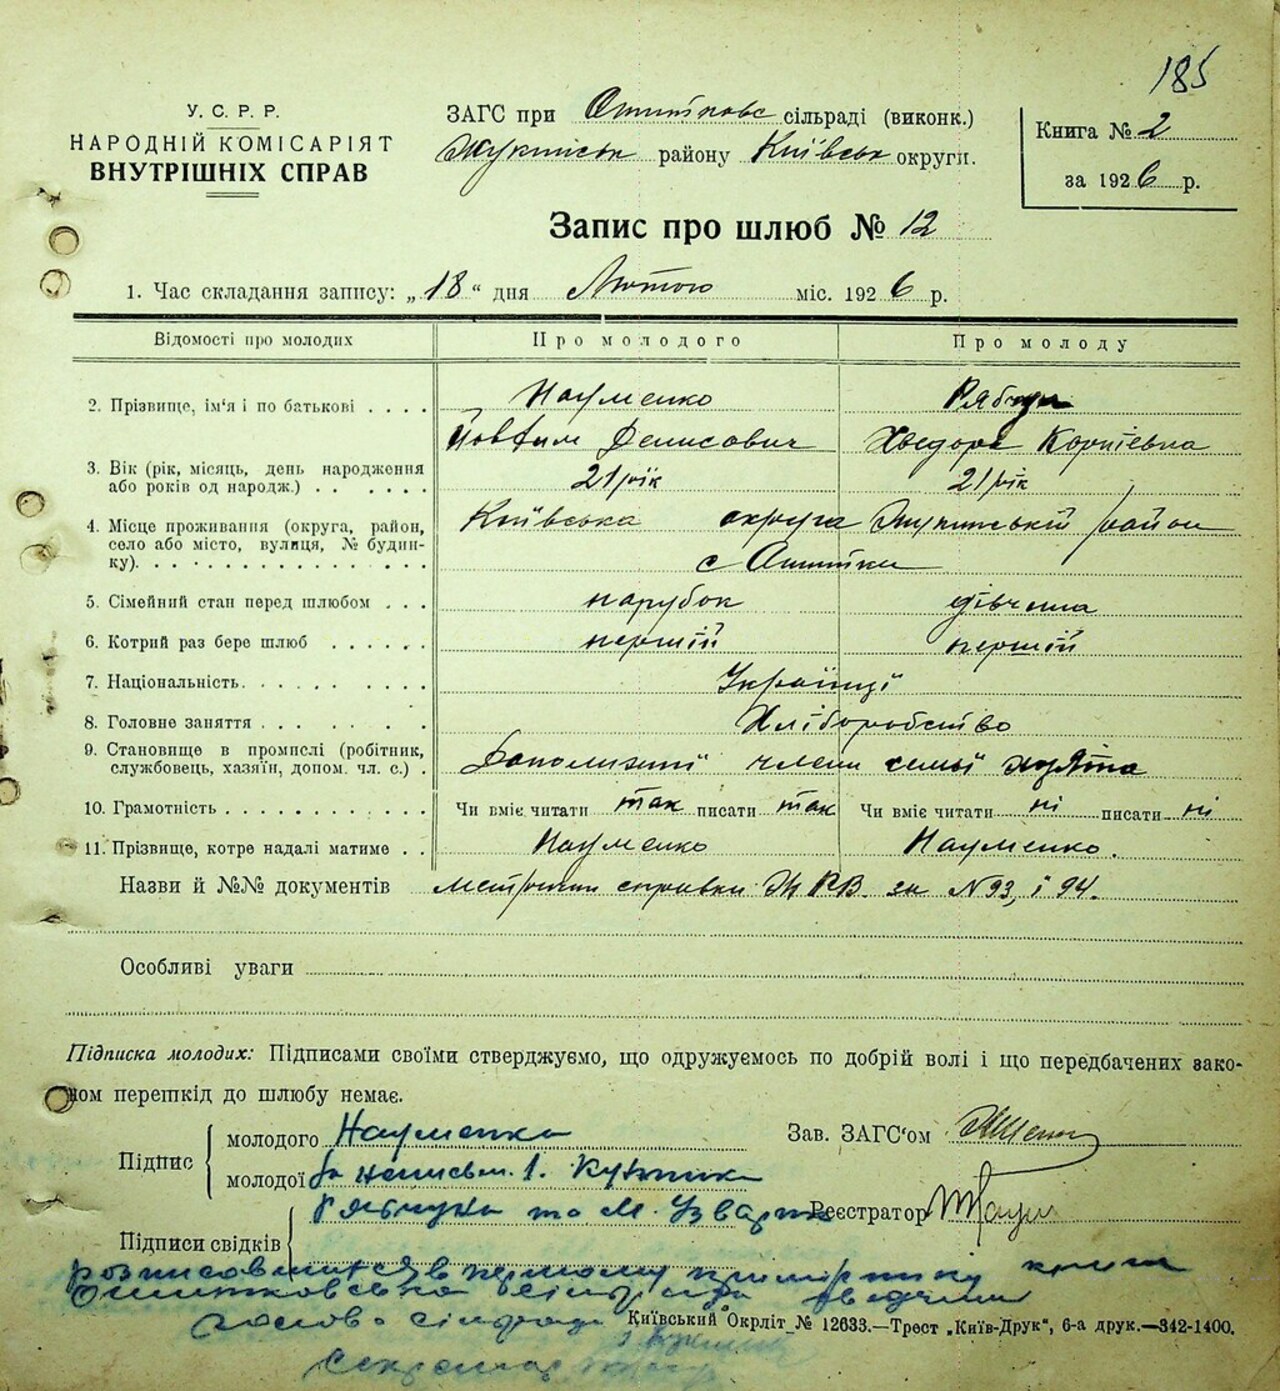 185
У. С. Р. Р.
НАРОДНІЙ КОМІСАРІЯТ
ВНУТРІШНІХ СПРАВ
ЗАГС при сільраді (виконк.)
району Київськ округи.
Книга № 2
за 1926 р.
Запис про шлюб № 12
1. Час складання запису: „18“ дня Лютого міс. 1926 р.
Відомості про молодих Про молодого Про молоду
2. Прізвище, ім'я і по батькові . . . . Науменко
Йовтим Денисович Хведора Корніевна
3. Вік (рік, місяць, день народження
або років од народж.) . . . . . . 21 рік 21 рік
4. Місце проживання (округа, район, Київська округа район
село або місто, вулиця, № будин- с
ку). . . . . . . . . . . . . . .
5. Сімейний стан перед шлюбом . . . парубок дівчина
6. Котрий раз бере шлюб . . . . . . першій першій
7. Національність. . . . . . . . . . Українці
8. Головне заняття . . . . . . . . Хліборобство
9. Становище в промислі (робітник, члени семьї
службовець, хазяїн, допом. чл. с.) .
10. Грамотність . . . . . . . . . . . . Чи вміє читати так писати так Чи вміє читати ні писати ні
11. Прізвище, котре надалі матиме . . Науменко Науменко.
Назви й №№ документів справки за N 93, і 94.
Особливі уваги
Підписка молодих: Підписами своїми стверджуємо, що одружуємось по добрій волі і що передбачених зако-
ном перешкід до шлюбу немає.
Підпис молодого Науменко
молодої
Зав. ЗАГС'ом
Реєстратор
Підписи свідків та М.
розписовшися в первому примірнику
голова сільради
Київський Окрліт № 12633.—Трест „Київ-Друк“, 6-а друк.—342-1400.
Секретар